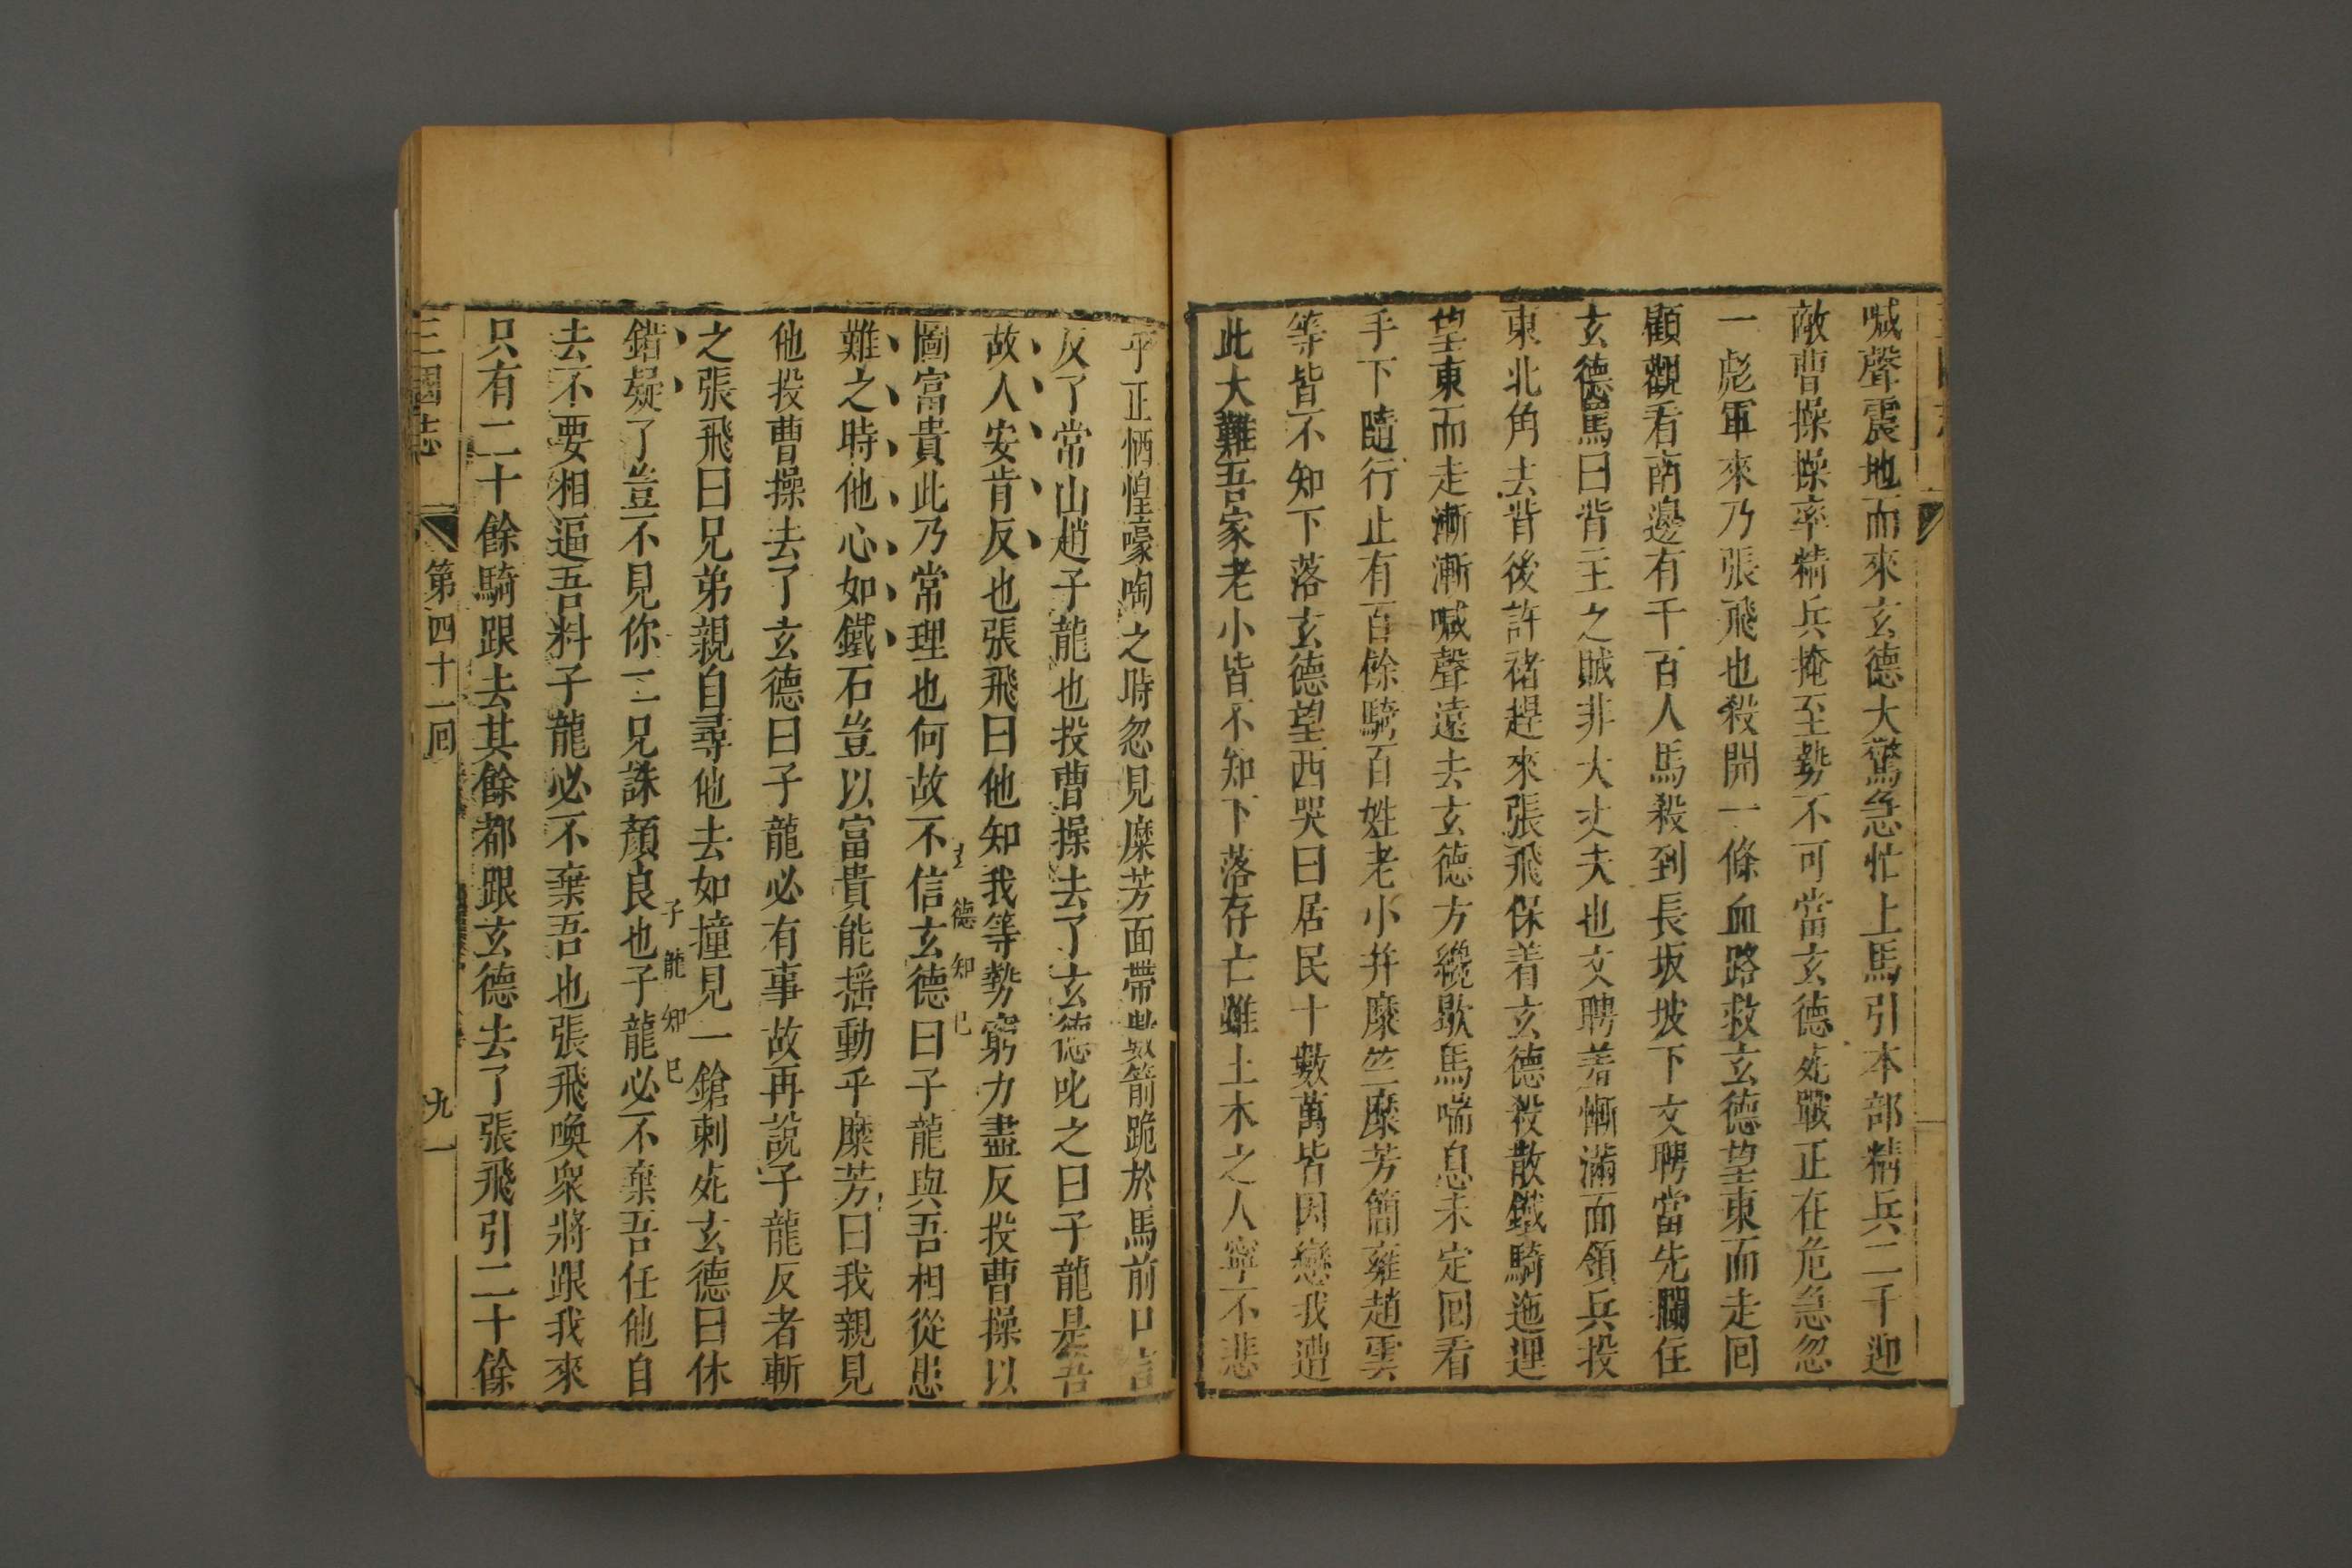 喊聲震地而來玄德大驚急忙上馬引本部精兵二千迎
敵曹操操率精兵掩至勢不可當玄德死戰正在危急忽
一彪軍來乃張飛也殺開一條血路救玄德望東而走回
顧觀看南邊有千百人馬殺到長坂坡下文聘當先攔住
玄德罵曰背主之賊非大丈夫也文聘羞慚滿面領兵投
東北角去背後許褚趕來張飛保着玄德殺散鐵騎迤逞
望東而走漸漸喊聲遠去玄德方纔歇馬喘息未定回看
手下隨行止有百餘騎百姓老小并糜竺糜芳簡雍趙雲
等皆不知下落玄德望西哭曰居民十數萬皆因戀我遭
此大難吾家老小皆不知下落存亡雖土木之人寧不悲
乎正恓惶嚎啕之時忽見糜芳面帶數箭跪於馬前口言
反了常山趙子龍也投曹操去了玄德叱之曰子龍是吾
故人安肯反也張飛曰他知我等勢窮力盡反投曹操以
圖富貴此乃常理也何故不信玄德曰子龍與吾相從患
玄德知己
難之時他心如鐵石豈以富貴能搖動乎糜芳曰我親見
他投曹操去了玄德曰子龍必有事故再說子龍反者斬
之張飛曰兄弟親自尋他去如撞見一鎗刺死玄德曰休
錯疑了豈不見你二兄誅顏良也子龍必不棄吾任他自
子龍知己
去不要相逼吾料子龍必不棄吾也張飛喚衆將跟我來
只有二十餘騎跟去其餘都跟玄德去了張飛引二十餘
三國志 第四十二回 九